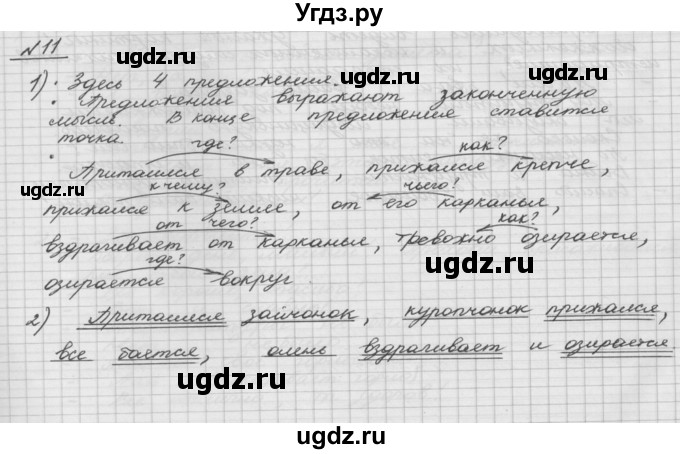 Угдз.ру
№11
1) • Здесь 4 предложения.
• Предложения выражают законченную
мысль. В конце предложения ставится
точка.
где? как?
• Притаился в траве, прижался крепче,
к чему? чьего?
прижался к земле, от его карканья,
от чего? как?
вздрагивает от карканья, тревожно озирается,
где?
озирается вокруг.
2) Притаился зайчонок, куропчонок прижался,
все боятся, олень вздрагивает и озирается.
ugdz.ru
ugdz.ru
ugdz.ru
ugdz.ru
ugdz.ru
ugdz.ru
ugdz.ru
ugdz.ru
ugdz.ru
ugdz.ru
ugdz.ru